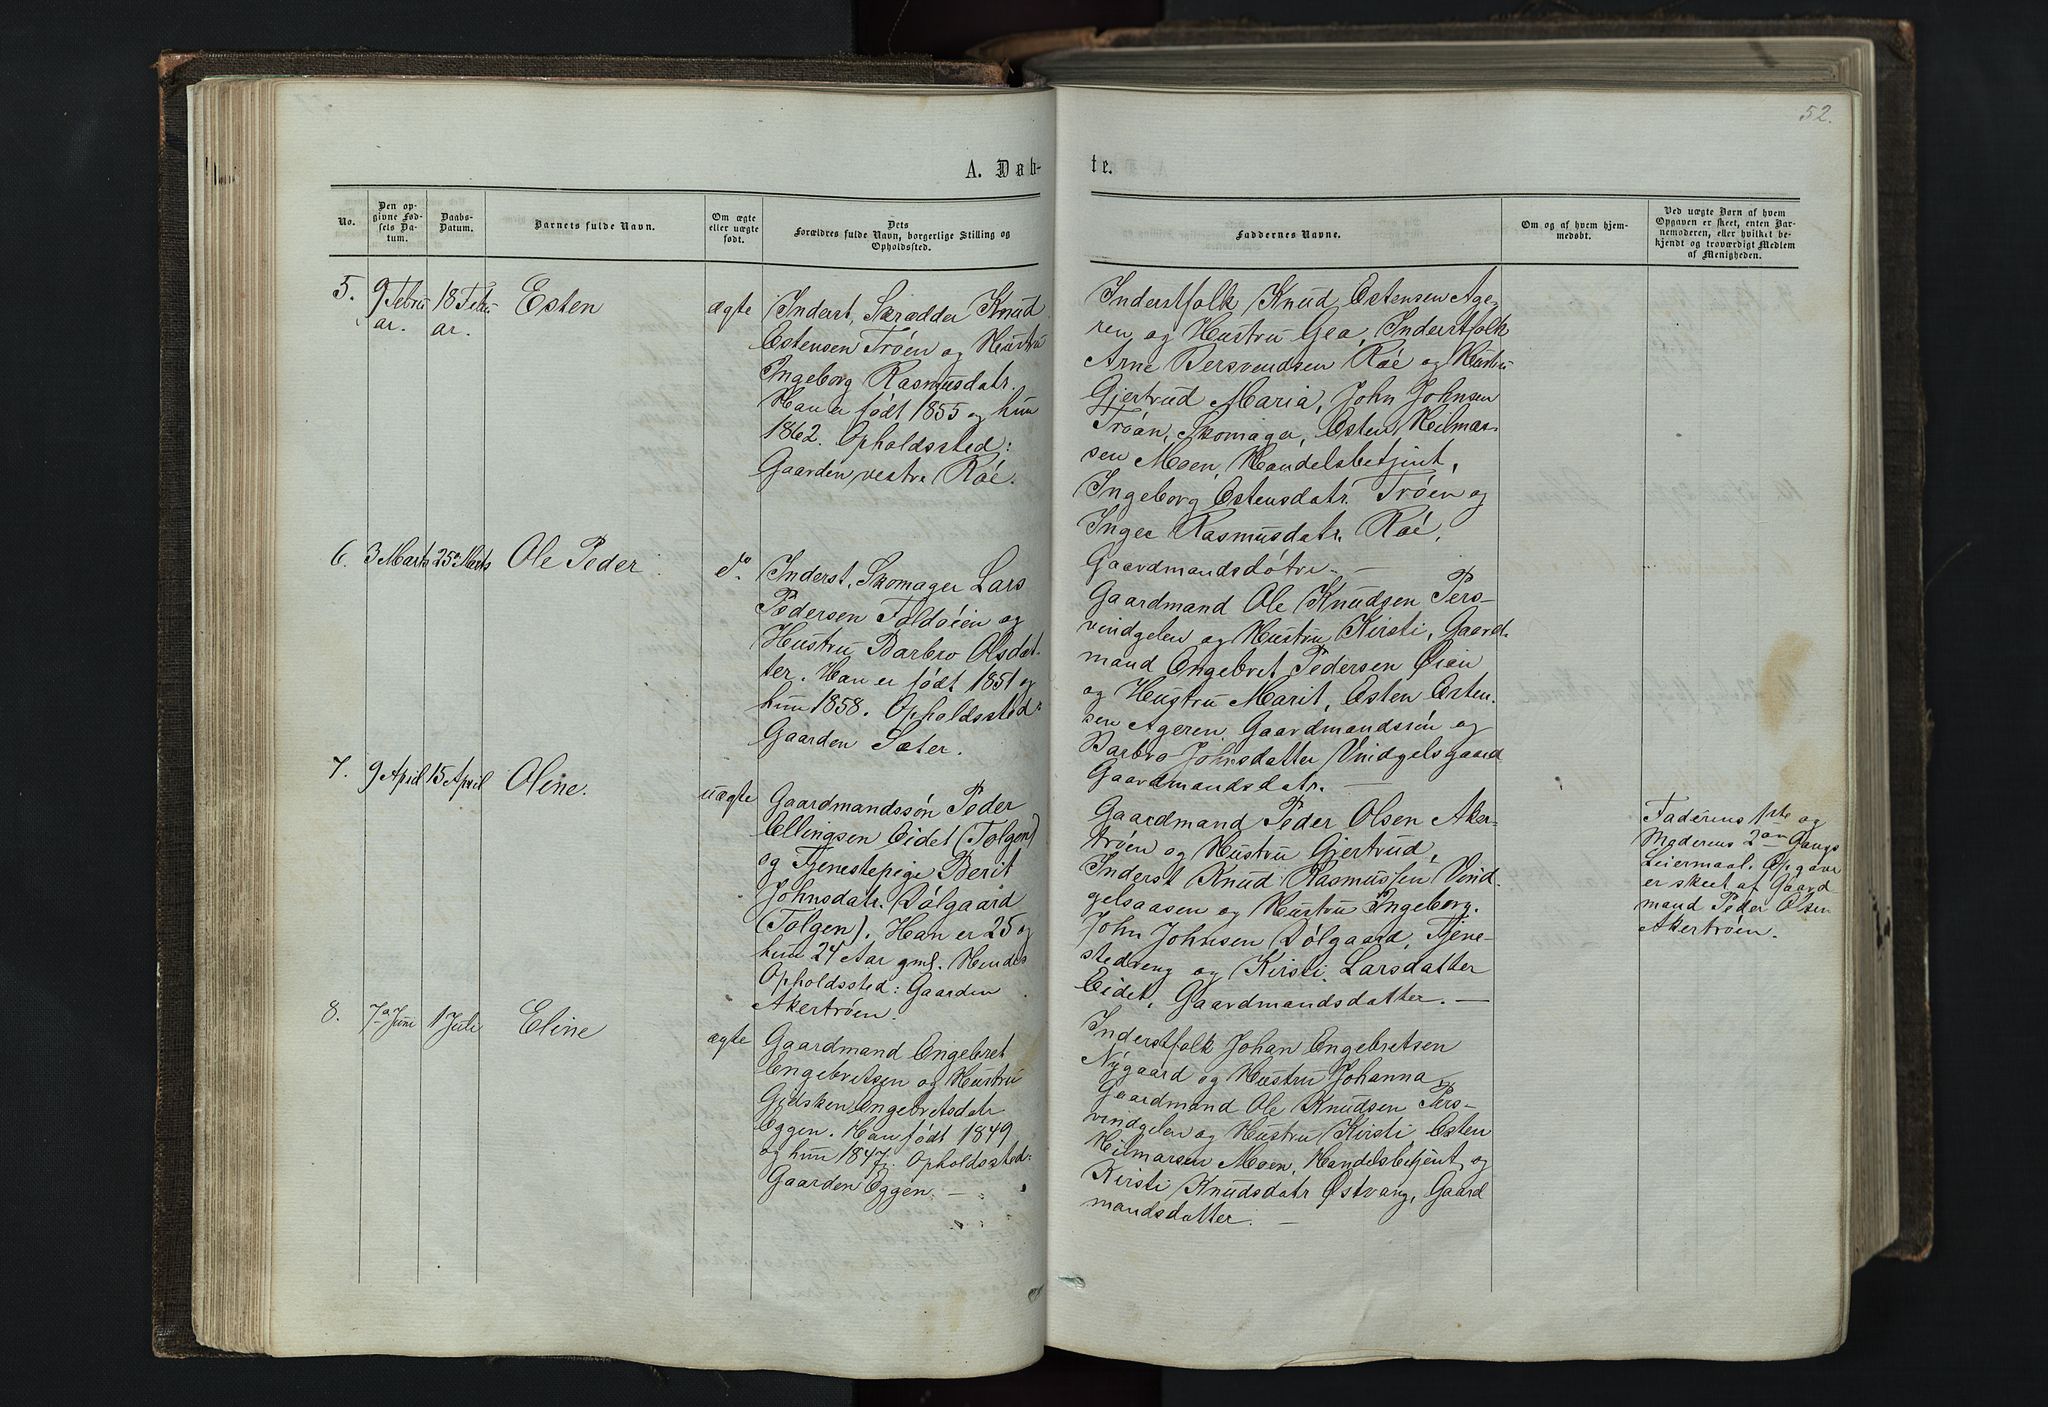 52.
A. Døb-
te.
No.
Den op-
givne Fød-
sels Da-
tum.
Daabs-
Datum.
Barnets fulde Navn.
Om ægte
eller uægte
født.
Dets
Forældres fulde Navn, borgerlige Stilling og
Opholdssted.
Faddernes Navne.
Om og af hvem hjem-
medøbt.
Ved uægte Børn af hvem
Opgaven er skeet, enten Bar-
nemoderen, eller hvilket be-
kjendt og troværdigt Medlem
af Menigheden.
5.
9 Febru
ar.
18 Febru
ar.
Esten
ægte
Inderst, Skrædder Knud
Estensen Trøen og Hustru
Ingeborg Rasmusdatr.
Han er født 1855 og hun
1862. Opholdssted:
Gaarden vestre Røe.
Inderstfolk Knud Estensen Age-
ren og Hustru Gea, Inderstfolk
Arne Bersvendsen Røe og Hustru
Gjertrud Maria, John Johnsen
Trøan, Skomager, Esten Hilmar-
sen Moen, Handelsbetjent,
Ingeborg Estensdatr. Trøen og
Inger Rasmusdatr. Røe,
Gaardmandsdøtre. —
6.
3 Marts
25de Marts
Ole Peder
do.
Inderst, Skomager Lars
Pedersen Foldøien og
Hustru Barbro Olsdat-
ter. Han er født 1851 og
hun 1858. Opholdssted:
Gaarden Sæter.
Gaardmand Ole Knudsen Pers-
vindgelen og Hustru Kirsti, Gaard-
mand Engebret Pedersen Øien
og Hustru Marit, Esten Esten-
sen Ageren, Gaardmandssøn og
Barbro Johnsdatter Vindgelsgaard
Gaardmandsdatr. —
7.
9 April
15 April
Oline.
uægte
Gaardmandssøn Peder
Ellingsen Eidet (Tolgen)
og Tjenestepige Berit
Johnsdatr. Dølgaard
(Tolgen). Han er 25 og
hun 24 Aar gml. Hendes
Opholdssted: Gaarden
Akertrøen.
Gaardmand Peder Olsen Aker-
trøen og Hustru Gjertrud,
Inderst Knud Rasmussen Vind-
gelsaasen og Hustru Ingeborg.
John Johnsen Dølgaard, Tjene-
stedreng og Kirsti Larsdatter
Eidet, Gaardmandsdatter. —
Faderens 1ste og
Moderens 2den Gangs
Leiermaal. Opgave
er skeet af Gaard
mand Peder Olsen
Akertrøen.
8.
7de Juni
1 Juli
Eline
ægte
Gaardmand Engebret
Engebretsen og Hustru
Gidsken Engebretsdatr
Eggen. Han født 1849
og hun 1847. Opholdssted:
Gaarden Eggen. —
Inderstfolk Johan Engebretsen
Nygaard og Hustru Johanna,
Gaardmand Ole Knudsen Pers-
vindgelen og Hustru Kirsti, Esten
Hilmarsen Moen, Handelsbetjent og
Kirsti Knudsdatr Østvang, Gaard
mandsdatter. —